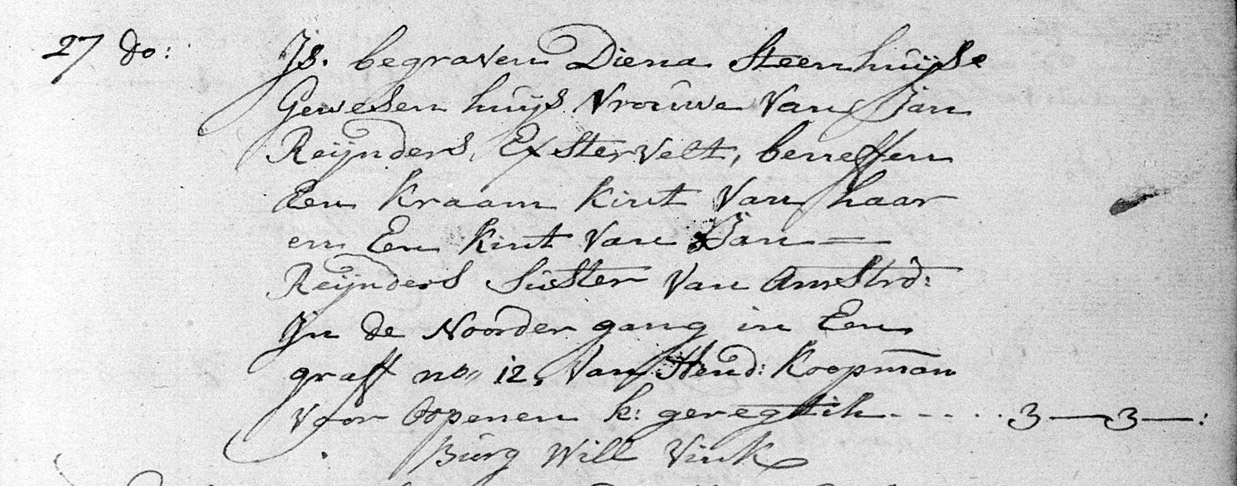 27 do: Js. begraven Diena Steenhuijse
Gewesen huijs Vrouwe Van Jan
Reijnders Exstervelt, beneffen
Een kraam kint Van haar
en Een kint Van Jan
Reijnders Suster Van Amstrd:
Jn de Noorder gang in Een
graff no 12, Van Hend: Koopman
Voor Oopenen k: geregtih.....3—3—:
Burg Will Vink